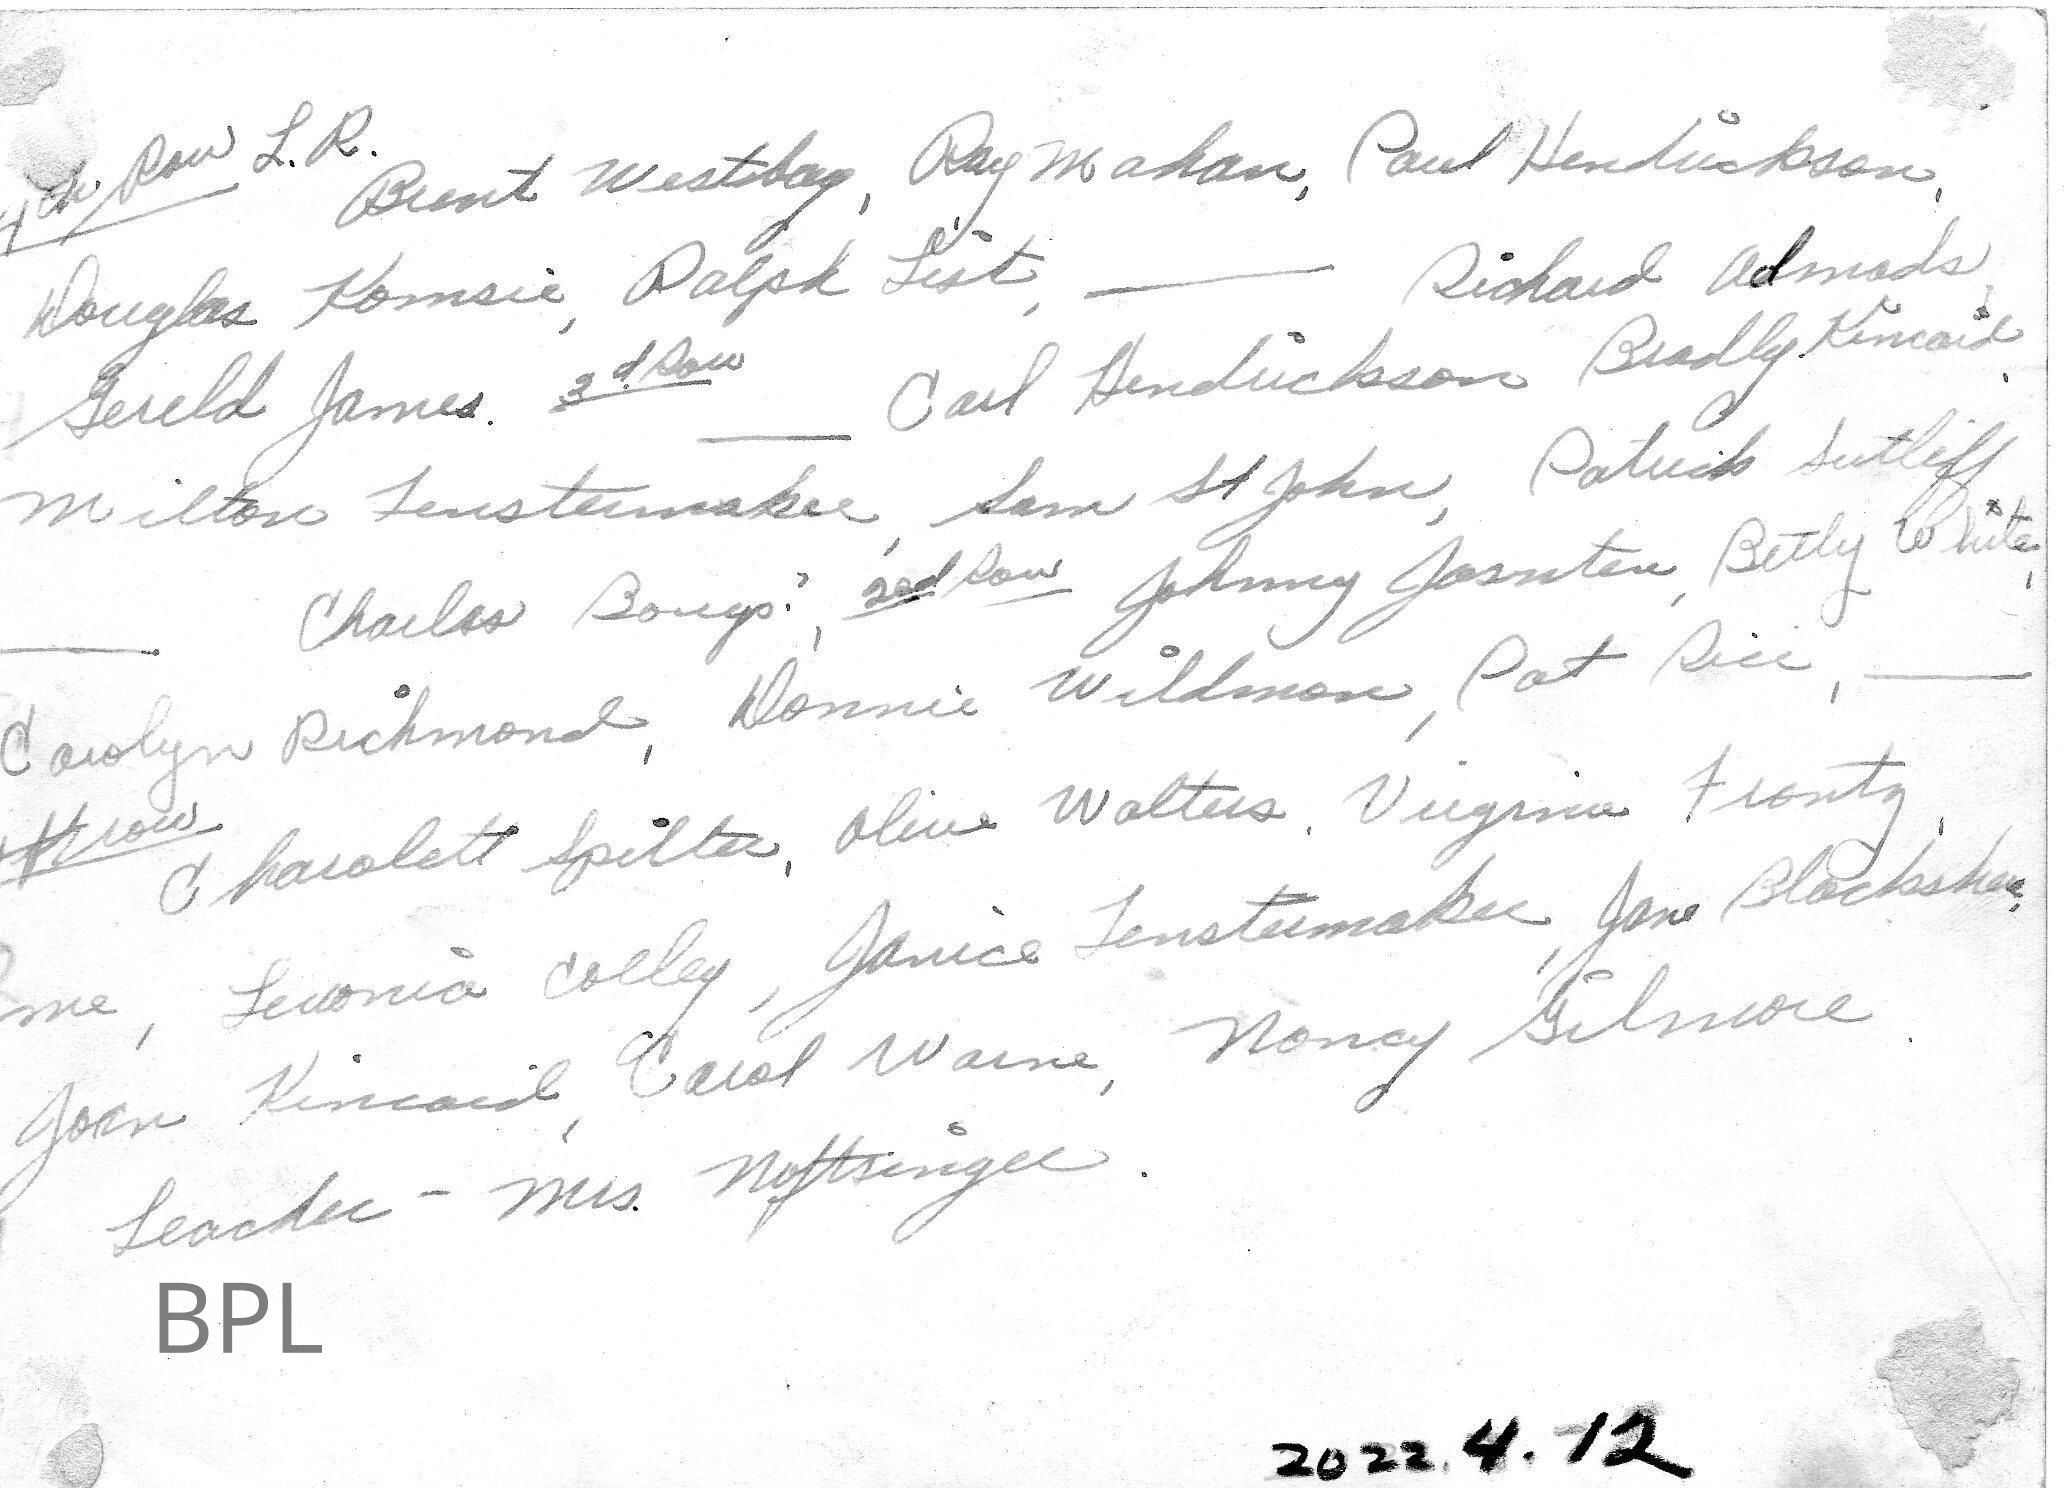 4th Row L.R.
Brent Westibay, Ray Mahan, Paul Hendrickson,
Douglas Komsie, Ralph List, —— Richard Admads,
Gereld James. 3d Row —— Carl Hendrickson Bradly Kincaid,
Milton Fenstermaker, Sam St John, Patrick Sutliff
—— Charles Bougs?, 2nd Row Johnny Joanten, Betty White,
Carolyn Richmond, Donnie Wildmon, Pat Rice, ——
1st row Charolett Spitter, Olive Walters, Virginia Frontz,
me, Leuonia Colley, Janice Fenstermaker, Jane Blackshere,
Joan Kincaid, Carol Warne, Nancy Gilmore.
Teacher - Mrs. Noftsinger.
BPL
2022.4.12